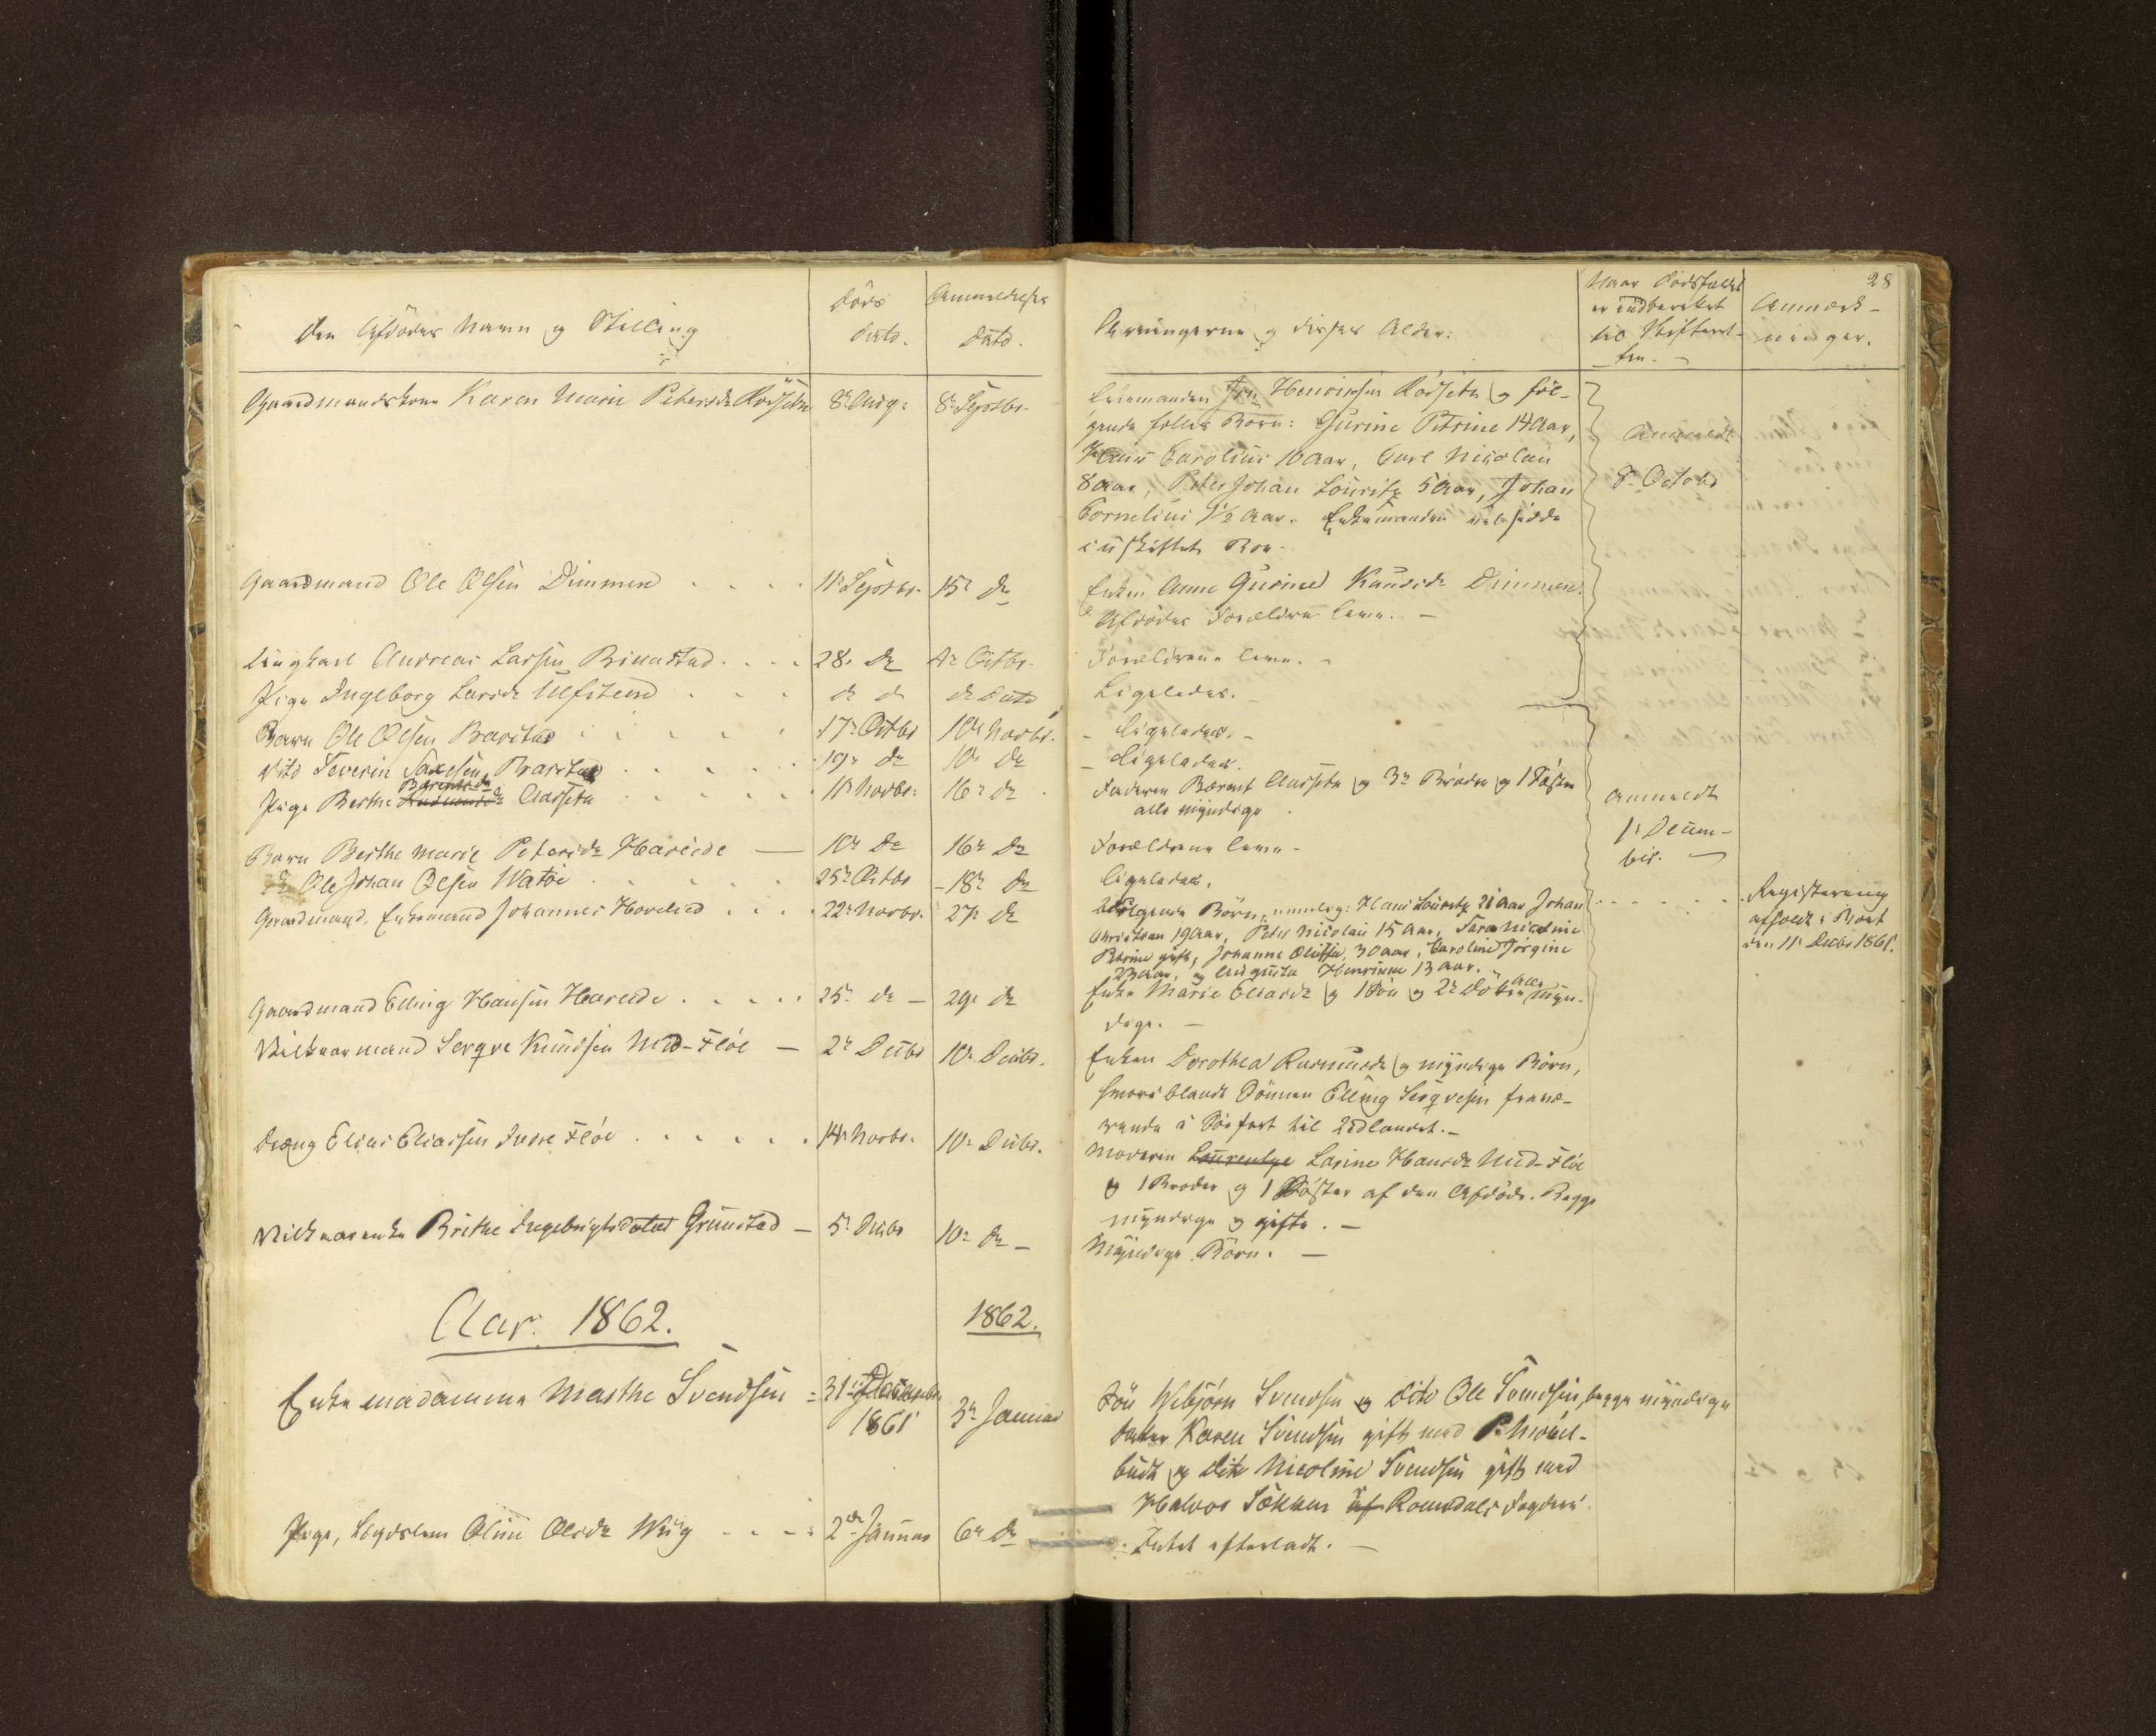 28
Den Afdödes Navn og Stilling
Döds
Dato.
Anmeldelses
Dato.
Arvingerne og disses Alder.
Naar Dödsfaldet
er indberettet
til Skifteret-
ten.
Anmærk-
ninger.
Gaardmandskone Karen Marie Petersdr Rödsetn
8r Aug:
8r Septbr.
Enkemanden Jens Henriksen Rödsetn og föl-
gende fælles Börn: Gurine Petrine 14 Aar,
Hans Carolius 10 Aar, Carl Nicolai
8 Aar, Peter Johan Louritz 5 Aar, Johan
Cornelius 1½ Aar. Enkemanden
i uskiftet Boe.
Anmeldt
8r Octobr
Gaardmand Ole Olsen Dimmen
11r Septbr.
15r dr
Enken Anne Gurine Knudsdr Dimmen.
Afdödes Forældre leve.
Ungkarl Andreas Larsen Brimstad
28r dr
4r Octbr.
Forældrene leve.
Pige Ingeborg Larsdr Ulfsteen
dr dr
dr Dato
Ligeledes.
Barn Ole Olsen Barstad
17r Octbr
10r Novbr.
Ligeledes.
Dito Severin Saxesen Barstad
19r dr
10r dr
Ligeledes.
Pige Berthe Bærentsdr Aarsetn
11r Novbr:
16r dr
Faderen Bærent Aarsetn og 3r Brödre og 1 Söster
alle myndige
Anmeldt
1r Decem-
ber.
Barn Berthe Marie Petersdr Hareide
10r dr
16r dr
Forældrene leve
dr Ole Johan Olsen Watöe
25r Octbr
18r dr
Ligeledes.
Gaardmand, Enkemand Johannes Hovelid
22r Novbr.
27r dr
Fölgende Börn, nemlig: Hans Louritz 21 Aar Johan
Christian 19 Aar, Peter Nicolai 15 Aar, Sara Nicoline
Petrine gift, Johanne Oluffa 30 Aar, Caroline Jörgine
23 Aar, og Augusta Henrikke 13 Aar.
Registrering
afholdt i Boet
den 11r Decbr 1861.
Gaardmand Elling Hansen Hareide
25r dr
29r dr
Enke Marie Eliasdr og 1 Sön og 2r Dötre, alle myn-
dige.
Vilkaarmand Sergve Knudsen Mid-Flöe
2r Decbr
10r Decbr.
Enken Dorothea Rasmusdr og myndige Börn,
hvoriblandt Sönnen Elling Sergvesen fravæ-
rende i Söefart til Udlandet.
Dreng Elias Eliassen Indre Flöe
14r Novbr.
10r Decbr.
Moderen Laurentze Larine Hansdr Mid-Flöe
og 1 Broder og 1 Söster af den Afdöde. Begge
myndige og gifte.
Vilkaarenke Brithe Ingebrigtsdatter Grimstad
5r Decbr
10r dr
Myndige Börn.
Aar. 1862.
1862.
Enkemadamme Marthe Svendsen
31r December
1861
3r Januar
Sön Webjörn Svendsen og Dito Ole Svendsen, begge myndige
Datter Karen Svendsen gift med P.
og Dito Nicoline Svendsen gift med
Halvor Sökken af Romsdals Fogderi
Pige, Lægdslem Oline Olsdr Wiig
2de Januar
6r dr
Intet efterladt.